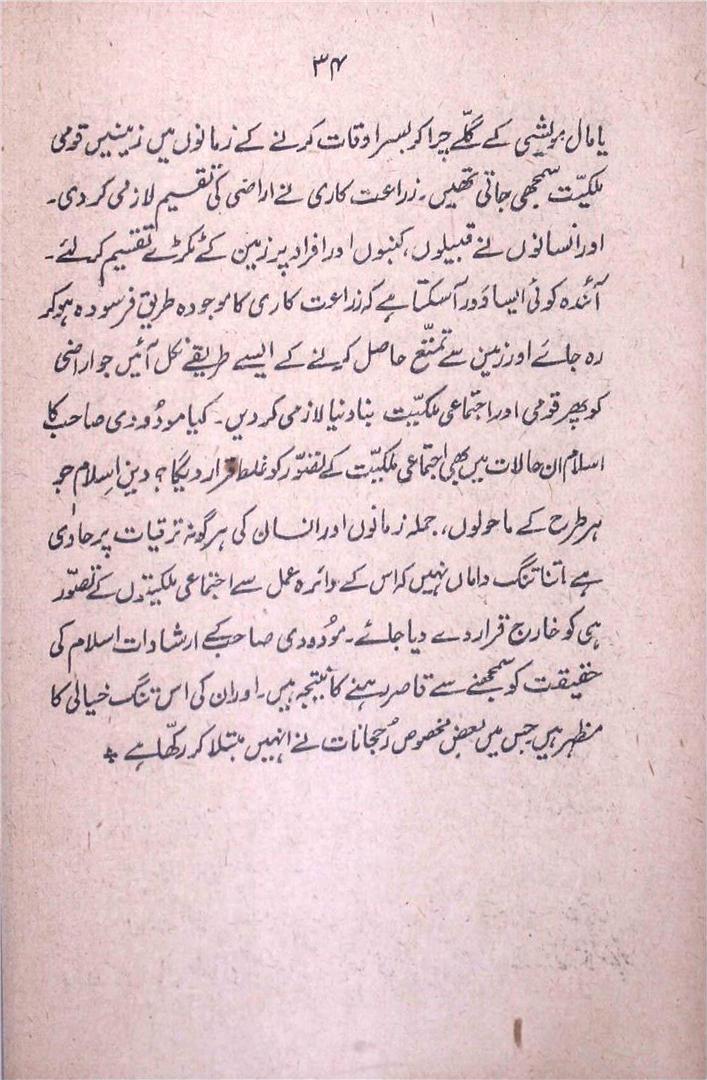 ۳۴
یا مال مویشی کے گلّے چرا کر بسر اوقات کرنے کے زمانوں میں زمینیں قومی
ملکیّت سمجھی جاتی تھیں۔ زراعت کاری نے اراضی کی تقسیم لازمی کر دی۔
اور انسانوں نے قبیلوں، کنبوں اور افراد پر زمین کے ٹکڑے تقسیم کر لئے۔
آئندہ کوئی ایسا دَور آسکتا ہے کہ زراعت کاری کا موجودہ طریق فرسودہ ہو کر
رہ جائے اور زمین سے تمتّع حاصل کرنے کے ایسے طریقے نکل آئیں جو اراضی
کو پھر قومی اور اجتماعی ملکیّت بنا دنیا لازمی کر دیں۔ کیا مودُودی صاحب کا
اسلام ان حالات میں بھی اجتماعی ملکیّت کے تصّور کو غلط قرار دیگا؟ دینِ اسلام جو
ہر طرح کے ماحولوں، جملہ زمانوں اور انسان کی ہر گونہ ترقیات پر حاوی
ہے اتنا تنگ داماں نہیں کہ اس کے دائرہ عمل سے اجتماعی ملکیتوں کے تصّور
ہی کو خارج قرار دے دیا جائے۔ مودُودی صاحب کے ارشادات اسلام کی
حقیقت کو سمجھنے سے قاصر رہنے کا نتیجہ ہیں۔ اور ان کی اس تنگ خیالی کا
مظہر ہیں جس میں بعض مخصوص رُجحانات نے انہیں مبتلا کر رکھّا ہے ؞